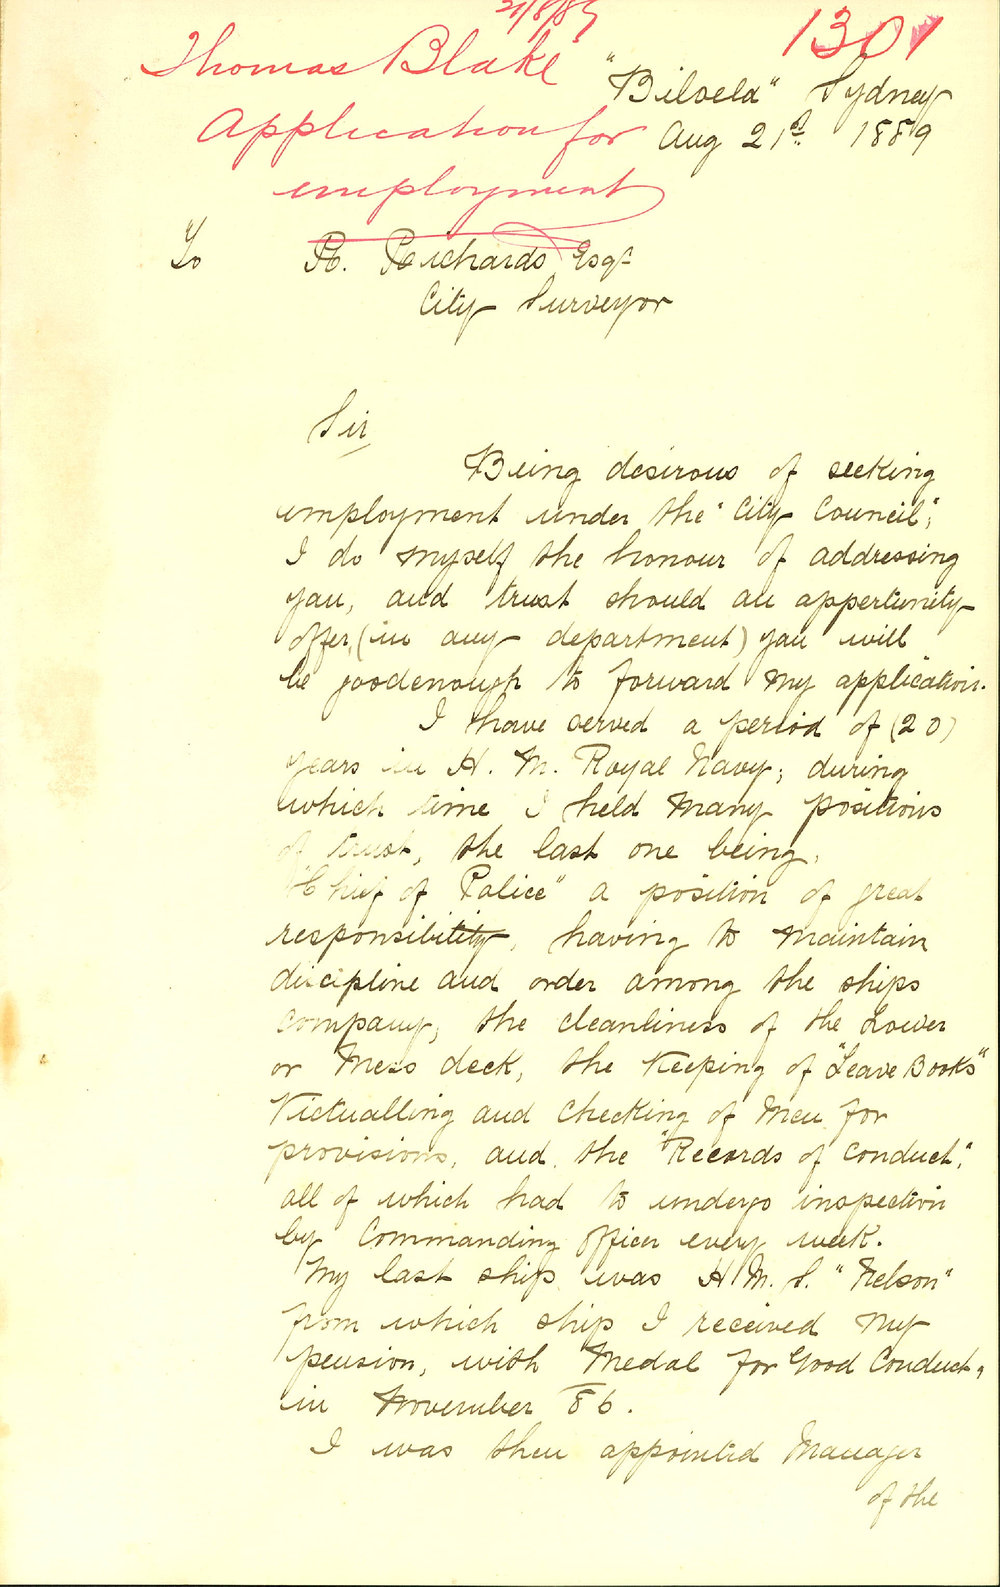 21/8/89
1301
Thomas Blake
Application for
employment
"Bilvela" Sydney
Aug 21st 1889
To R. Richards Esqr
City Surveyor
Sir,
Being desirous of seeking
employment under the "City Council",
I do myself the honour of addressing
you, and trust should an oppertunity
offer, (in any department) you will
be goodenough to forward my application.
I have served a period of (20)
years in H. M. Royal Navy; during
which time I held many positions
of trust, the last one being,
"Chief of Police" a position of great
responsibility, having to maintain
discipline and order among the ships
company, the cleanliness of the Lower
or Mess deck, the Keeping of "Leave Books"
Victualling and Checking of Men for
provisions, and the "Records of Conduct",
all of which had to undergo inspection
by Commanding Officer every week.
My last ship was H.M.S. "Nelson"
from which ship I received my
pension, with Medal for Good Conduct,
in November 86.
I was then appointed Manager
of the